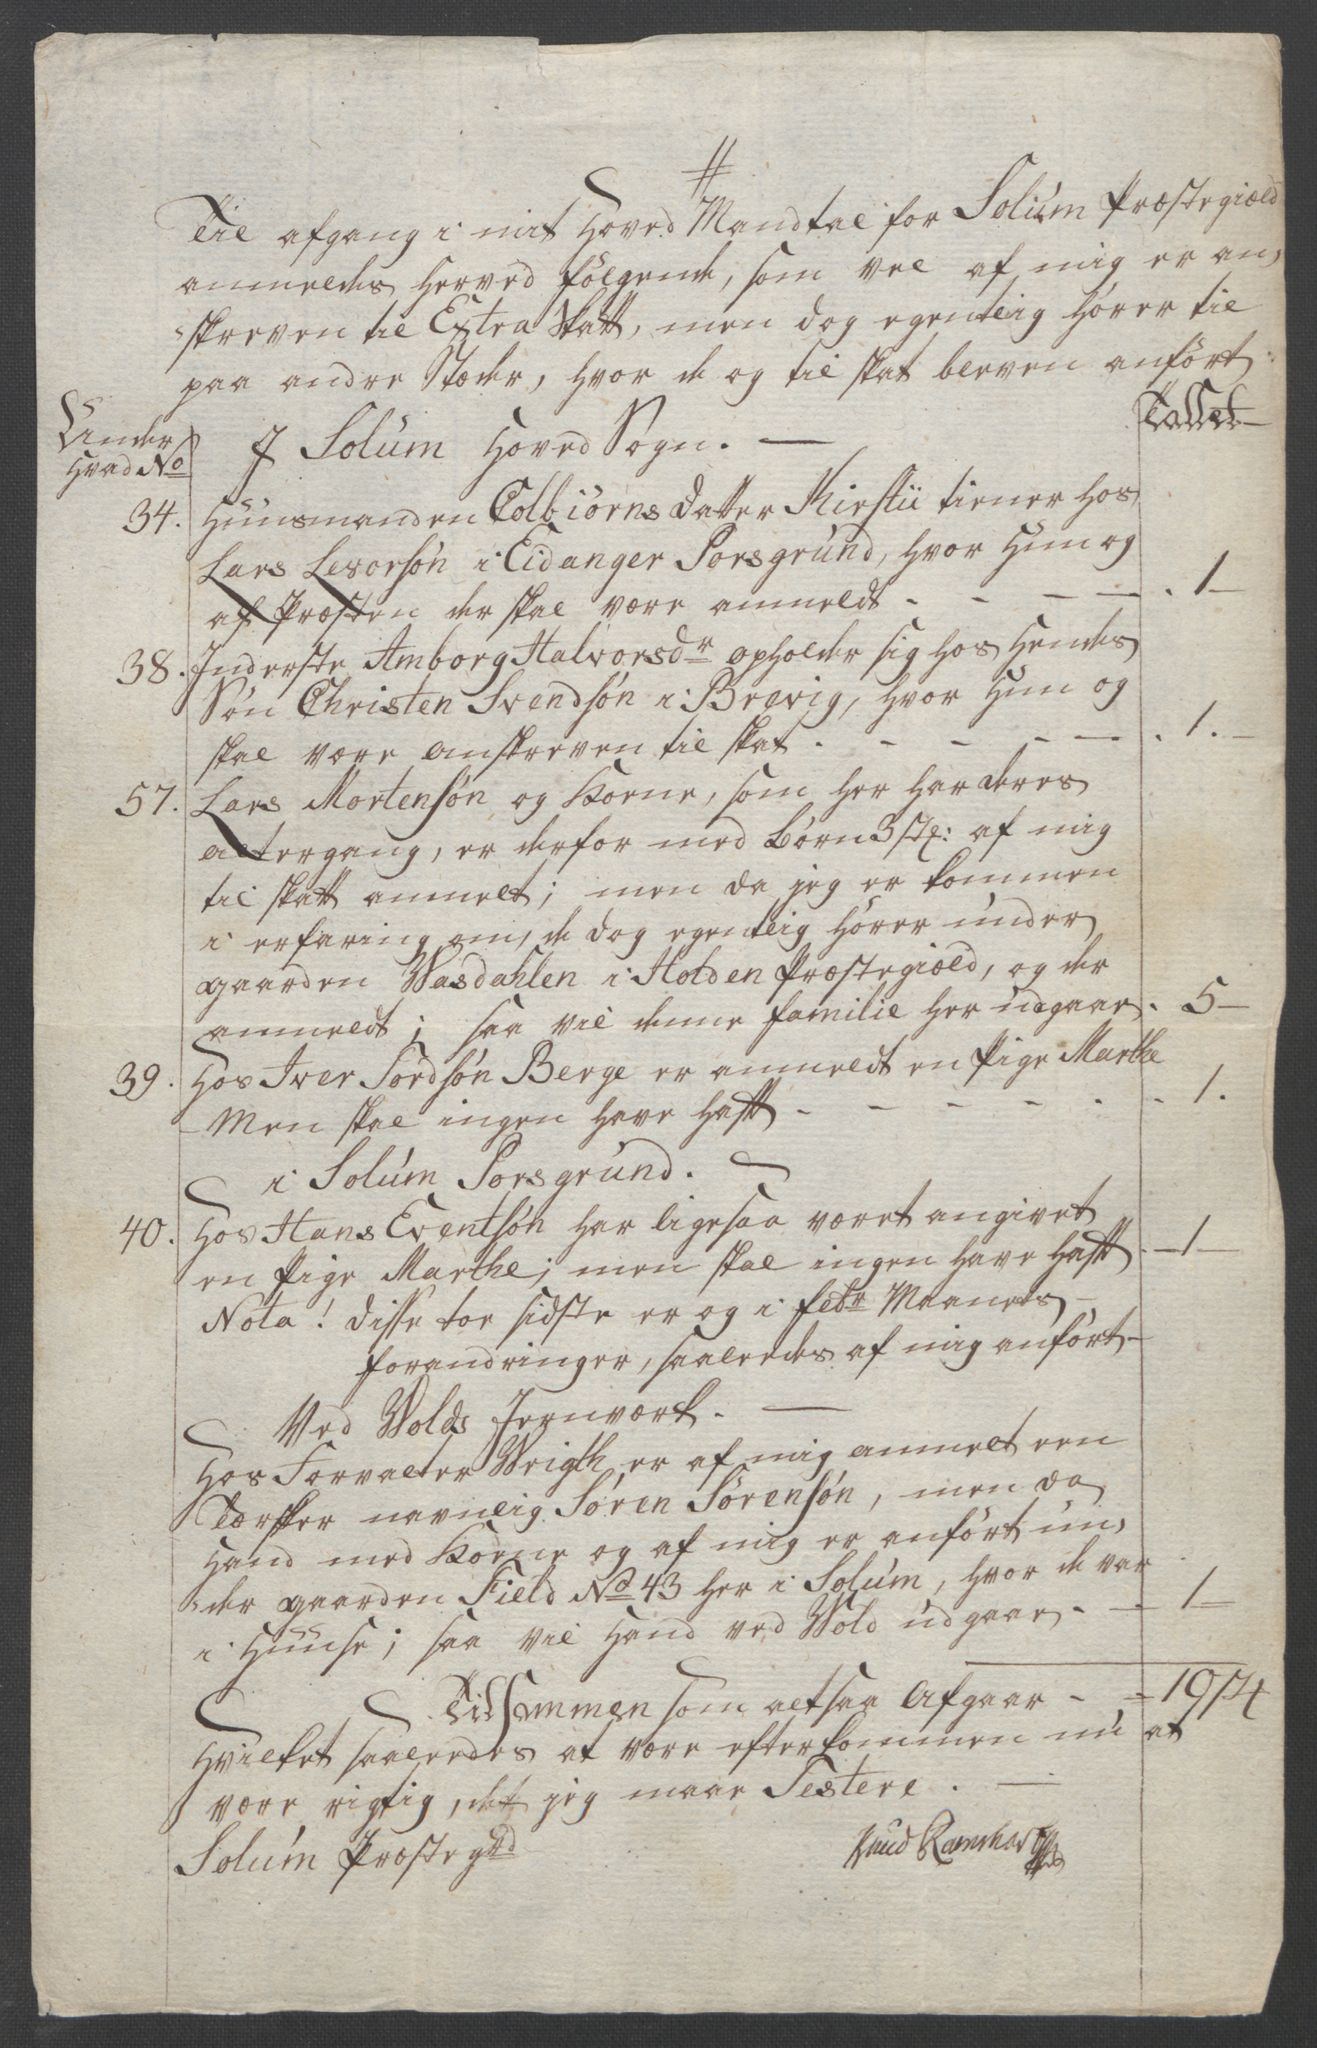 Til afgang i mit Hoved Mandtal for Solüm Præstegiæld
anmeldes herved følgende, som vel af mig er an-
skreven til Extra Skatt, men dog egentlig hører til
paa andre Stæder, hvor de og til skat bleven anført.
Tallet
Under
Hvad No
I Solüm Hoved Sogn.
34. Huusmanden Colbiørns Datter Kirstii tiener hos
Lars Levorsøn i Eidanger Porsgrund, hvor Hun og
af Præsten der skal være anmeldt - - - - 1
38. Inderste Amborg Halvorsdr opholder sig hos hendes
Søn Christen Svendsøn i Brevig, hvor Hun og
skal være anskreven til skat. - - - - 1.
57. Lars Mortensøn og Kone, som her har deres
altergang, er derfor med Børn 3 stk: af mig
til skatt anmelt; men da jeg er kommen
i erfaring om, de dog egentlig hører under
gaarden Wasdahlen i Holden Præstegiæld, og der
anmeldt; saa vil denne familie her udgaae. 5
39. Hos Iver Tordsøn Berge er anmeldt en Pige Marthe
Men skal ingen have haft - - - - - 1.
i Solüm Porsgrund.
40. Hos Hans Eventsøn har ligesaa været angivet
en Pige Marthe; men skal ingen have haft - 1
Nota! disse toe sidste er og i febr Maaneds
forandringer, saaledes af mig anført
Ved Wolds Jernværk.
Hos Forvalter Wrigth er af mig anmelt een
Tærsker navnlig Søren Sørensøn, men da
Hand med Kone og af mig er anført un-
der gaarden Field No 43 her i Solüm, hvor de var
i Huuse; saa vil Hand ved Wold udgaae - - 1
Tilsammen som altsaa Afgaar - - = 10
Hvilket saaledes at være efterkommen nu at
være rigtig, det jeg maae Testere.
Solüm Præstegd
Knud